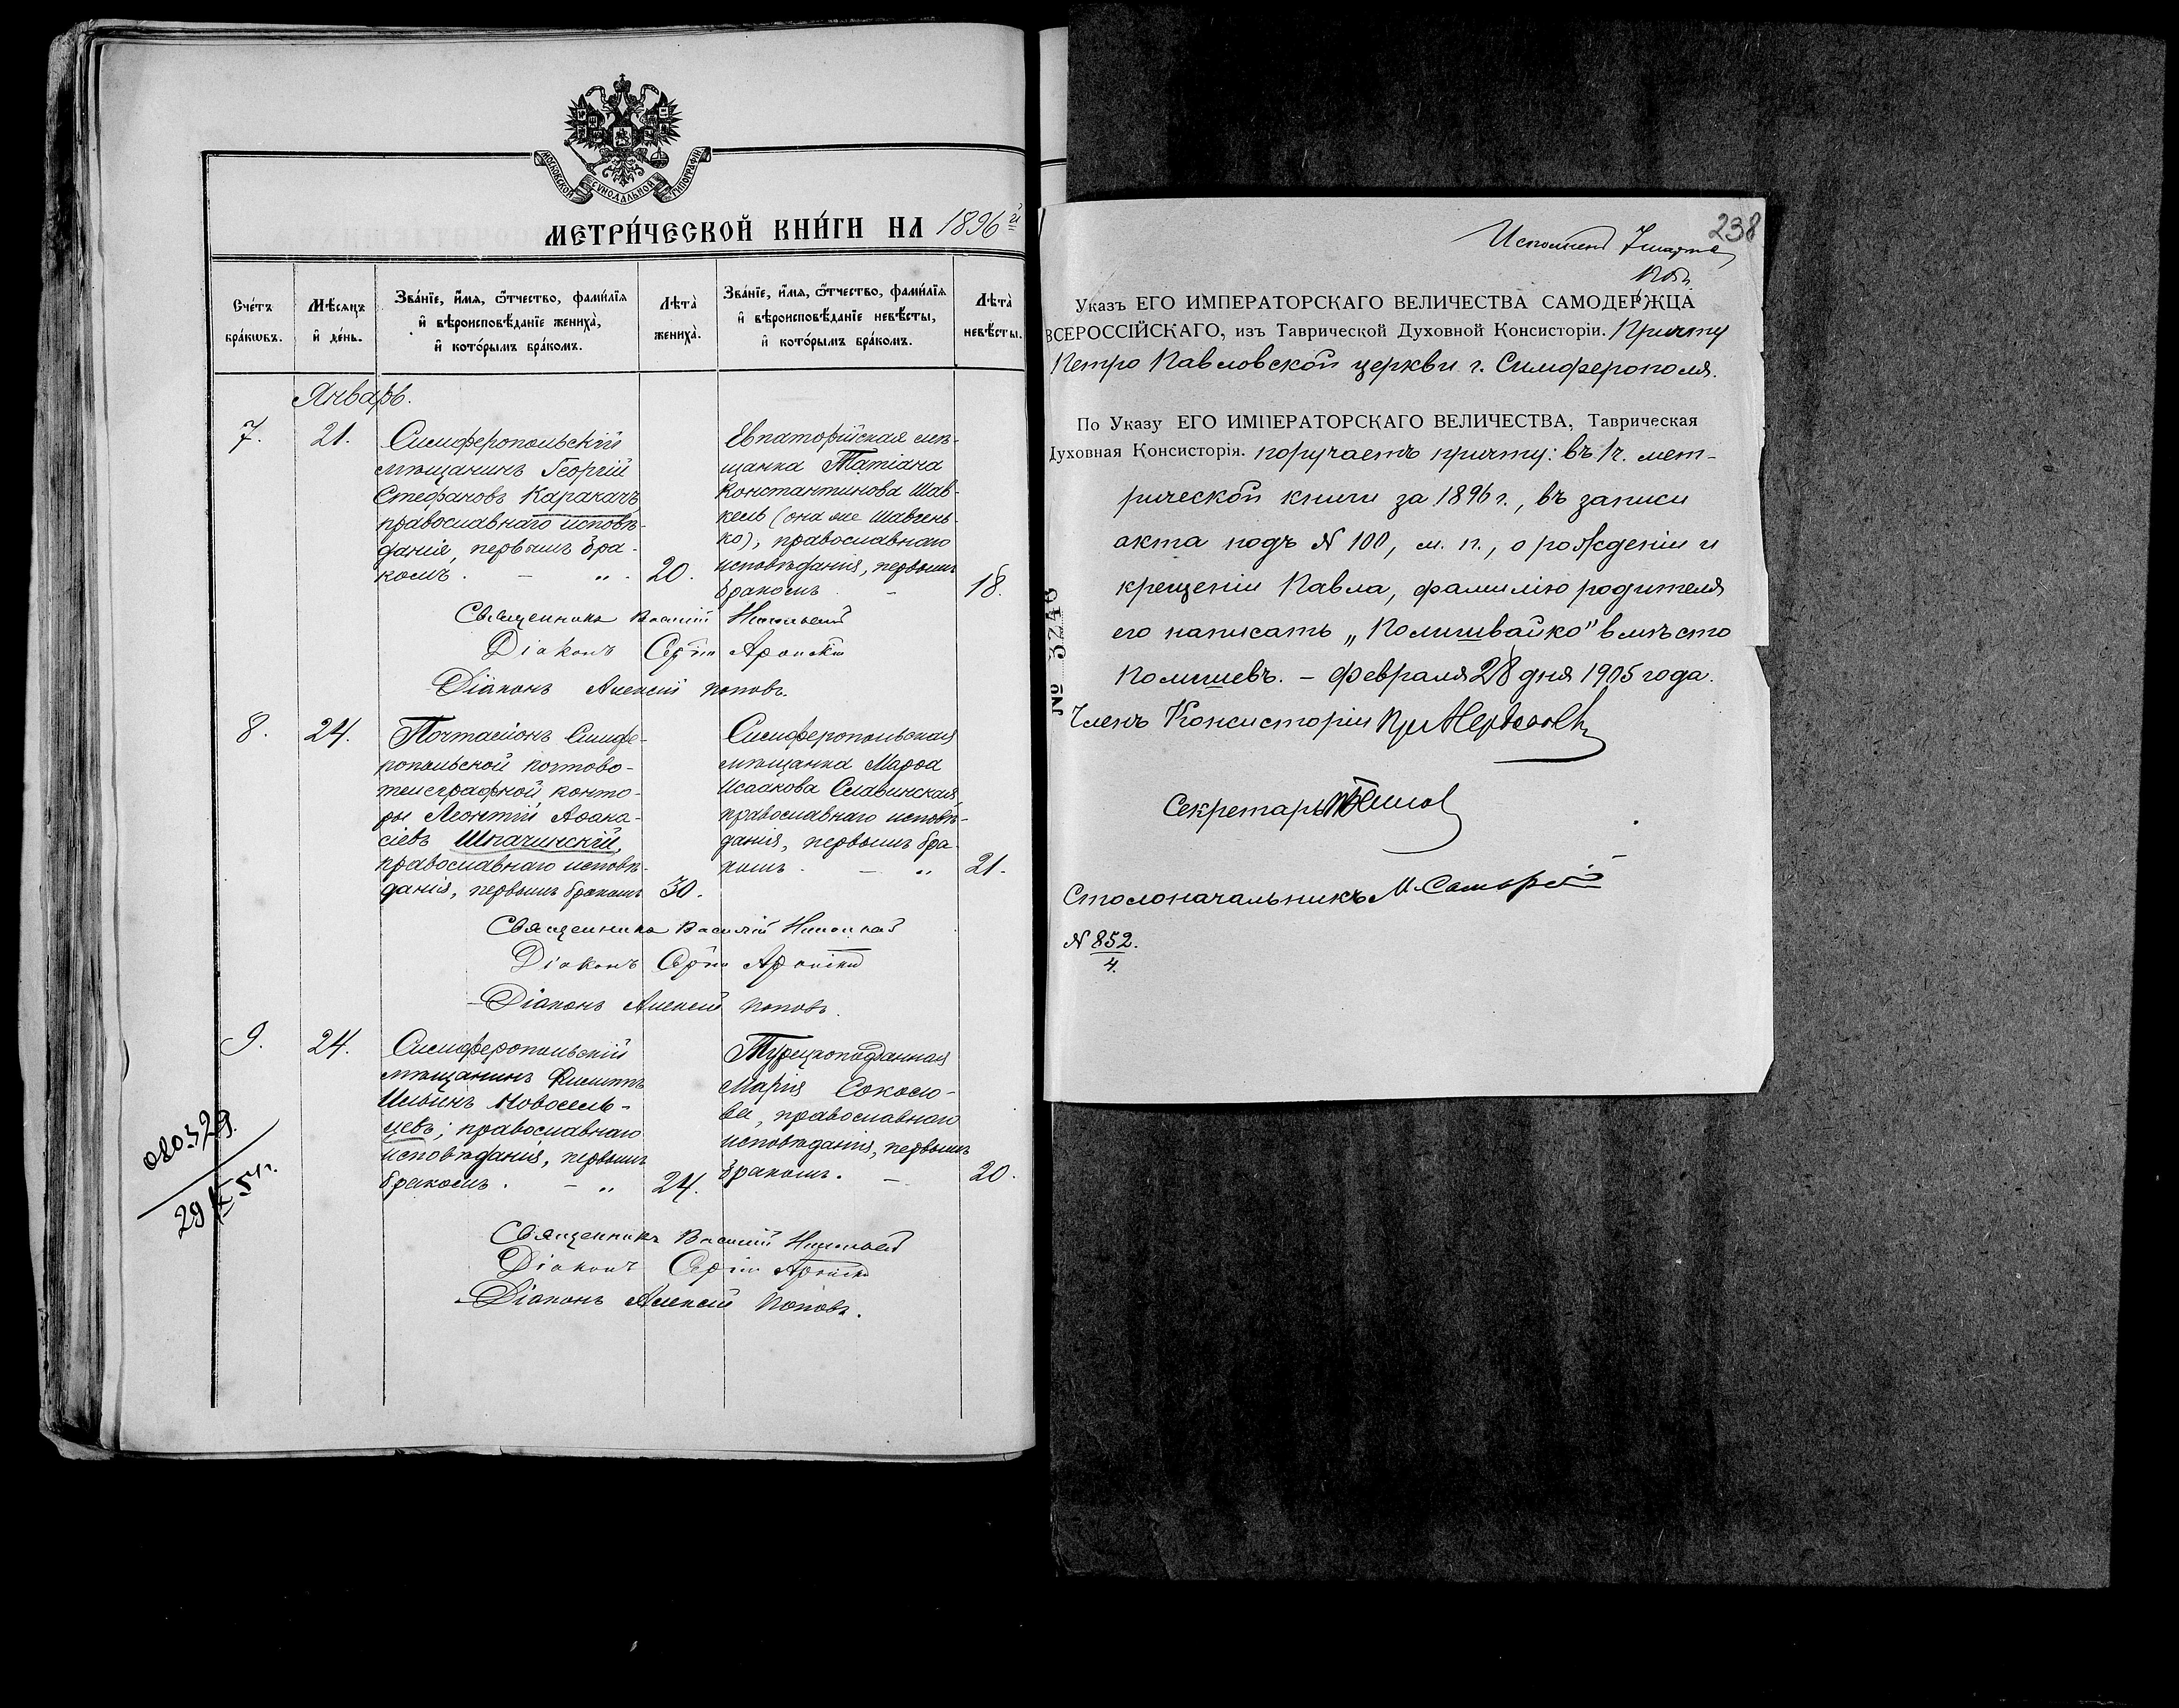 МОСКОВСКОЙ СУНОДАЛЬНОЙ ТИПОГРАФІИ
МЕТРИ́ЧЕСКОЙ КНИ́ГИ НА 1896й
Сче́тъ бра́кωвъ.
Мѣ́сяцъ и҆ де́нь.
Зва́нїе, и҆́мя, ѻ҆́тчество, фами́лїя и҆ вѣроисповѣ́данїе жениха̀, и҆ кото́рымъ бра́комъ.
Лѣта̀ жениха̀.
Зва́нїе, и҆́мя, ѻ҆́тчество, фами́лїя и҆ вѣроисповѣ́данїе невѣ́сты, и҆ кото́рымъ бра́комъ.
Лѣта̀ невѣ́сты.
Январь.
7.
21.
Симферопольскій
мѣщанинъ Георгій
Стефановъ Каракачъ
православнаго исповѣ-
данія, первымъ бра-
комъ. – „. 20.
Евпаторійская мѣ-
щанка Татіана
Константинова Шав-
кель (она же Шавчень-
ко), православнаго
исповѣданія, первымъ
бракомъ – 18.
Священникъ Василій
Діаконъ Сергій
Діаконъ Алексій Поповъ.
8.
24.
Почталіонъ Симфе-
ропольской почтово-
телеграфной конто-
ры Леонтій Аѳана-
сіевъ Шпачинскій,
православнаго исповѣ-
данія, первымъ бракомъ 30.
Симферопольская
мѣщанка Марѳа
Исаакова Славинская,
православнаго исповѣ-
данія, первымъ бра-
комъ. – „ 21.
Священникъ Василій
Діаконъ Сергій
Діаконъ Алексій Поповъ.
9.
24.
Симферопольскій
мѣщанинъ Филиппъ
Ильинъ Новосель-
цевъ; православнаго
исповѣданія, первымъ
бракомъ. – „ 24.
Турецкоподданная
Марія Соколо-
ва, православнаго
исповѣданія, первымъ
бракомъ. – 20.
Священникъ Василій
Діаконъ Сергій
Діаконъ Алексій Поповъ.
080329.
29/IX 51г.
238
Исполненъ 7 марта
Указъ ЕГО ИМПЕРАТОРСКАГО ВЕЛИЧЕСТВА САМОДЕРЖЦА
ВСЕРОССІЙСКАГО, изъ Таврической Духовной Консисторіи. Причту
Петро Павловской церкви г. Симферополя.
По Указу ЕГО ИМПЕРАТОРСКАГО ВЕЛИЧЕСТВА, Таврическая
Духовная Консисторія. поручаетъ причту: въ 1 ч. мет-
рической книги за 1896 г., въ записи
акта подъ № 100, м. п., о рожденіи и
крещеніи Павла, фамилію родителя
его написать „Колишвайко" вмѣсто
Колишевъ. – Февраля 28 дня 1905 года.
Членъ Консисторіи
Секретарь
Столоначальникъ М.
№ 852.
4.
№ 3240